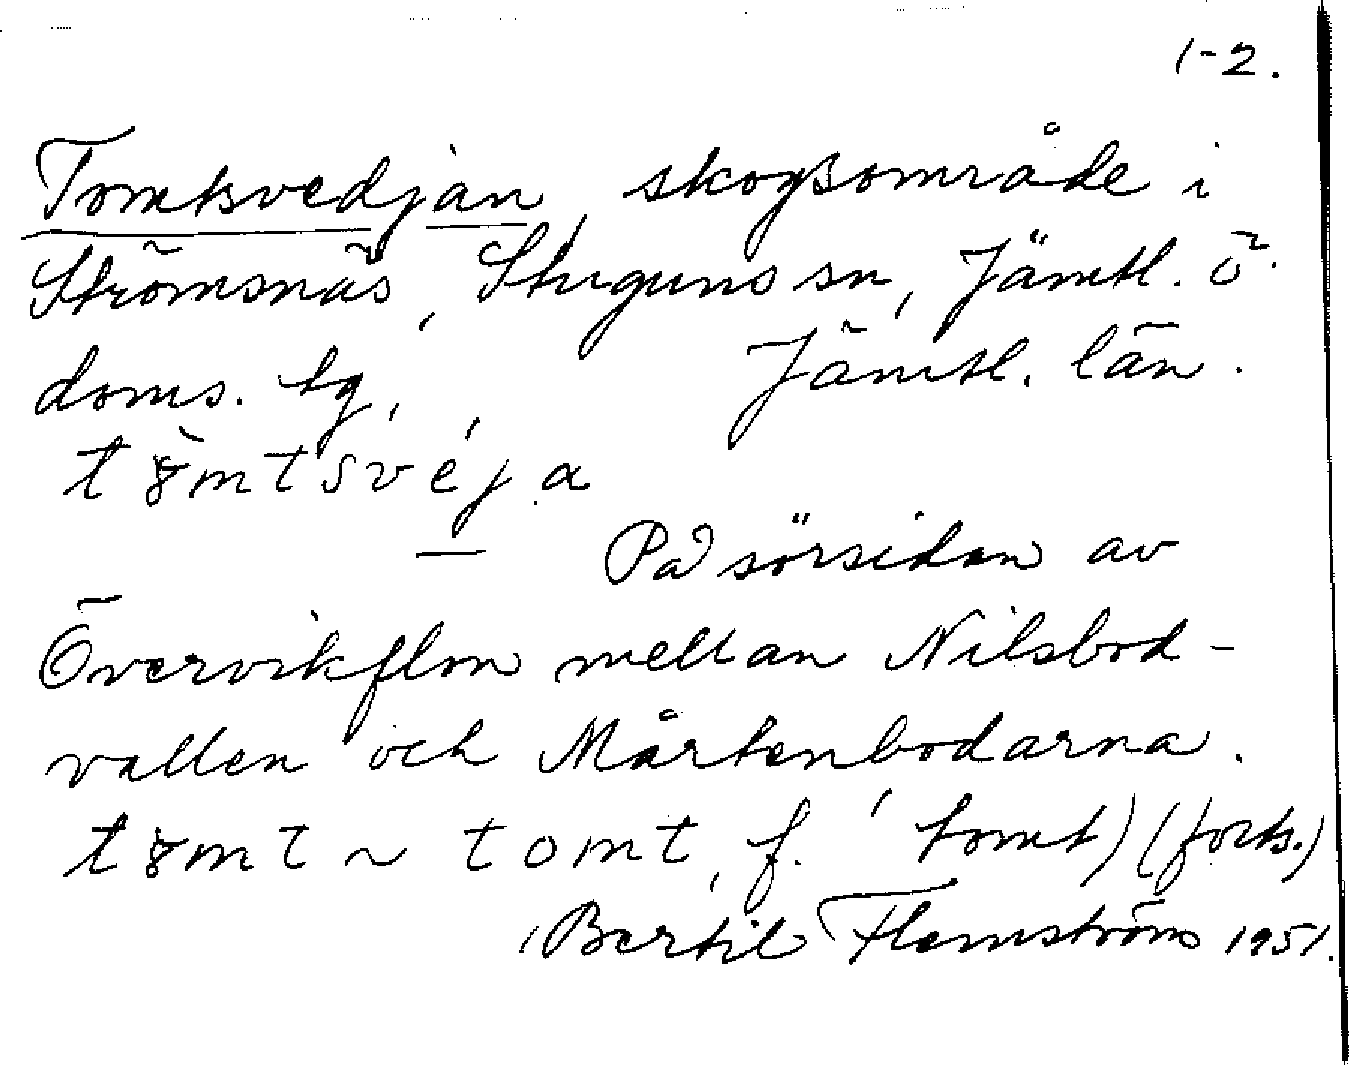 1-2.
Tomtsvedjan, skogsområde i
Strömsnäs, Stuguns sn, Jämtl. ö.
doms. tg, Jämtl. län.
tȣ̀mtsvéja
— På sörsidan av
Övervikflon mellan Nilsbod-
vallen och Mårtenbodarna.
tȣmt ~ tomt, f. 'tomt) (forts.)
Bertil Flemström 1951.